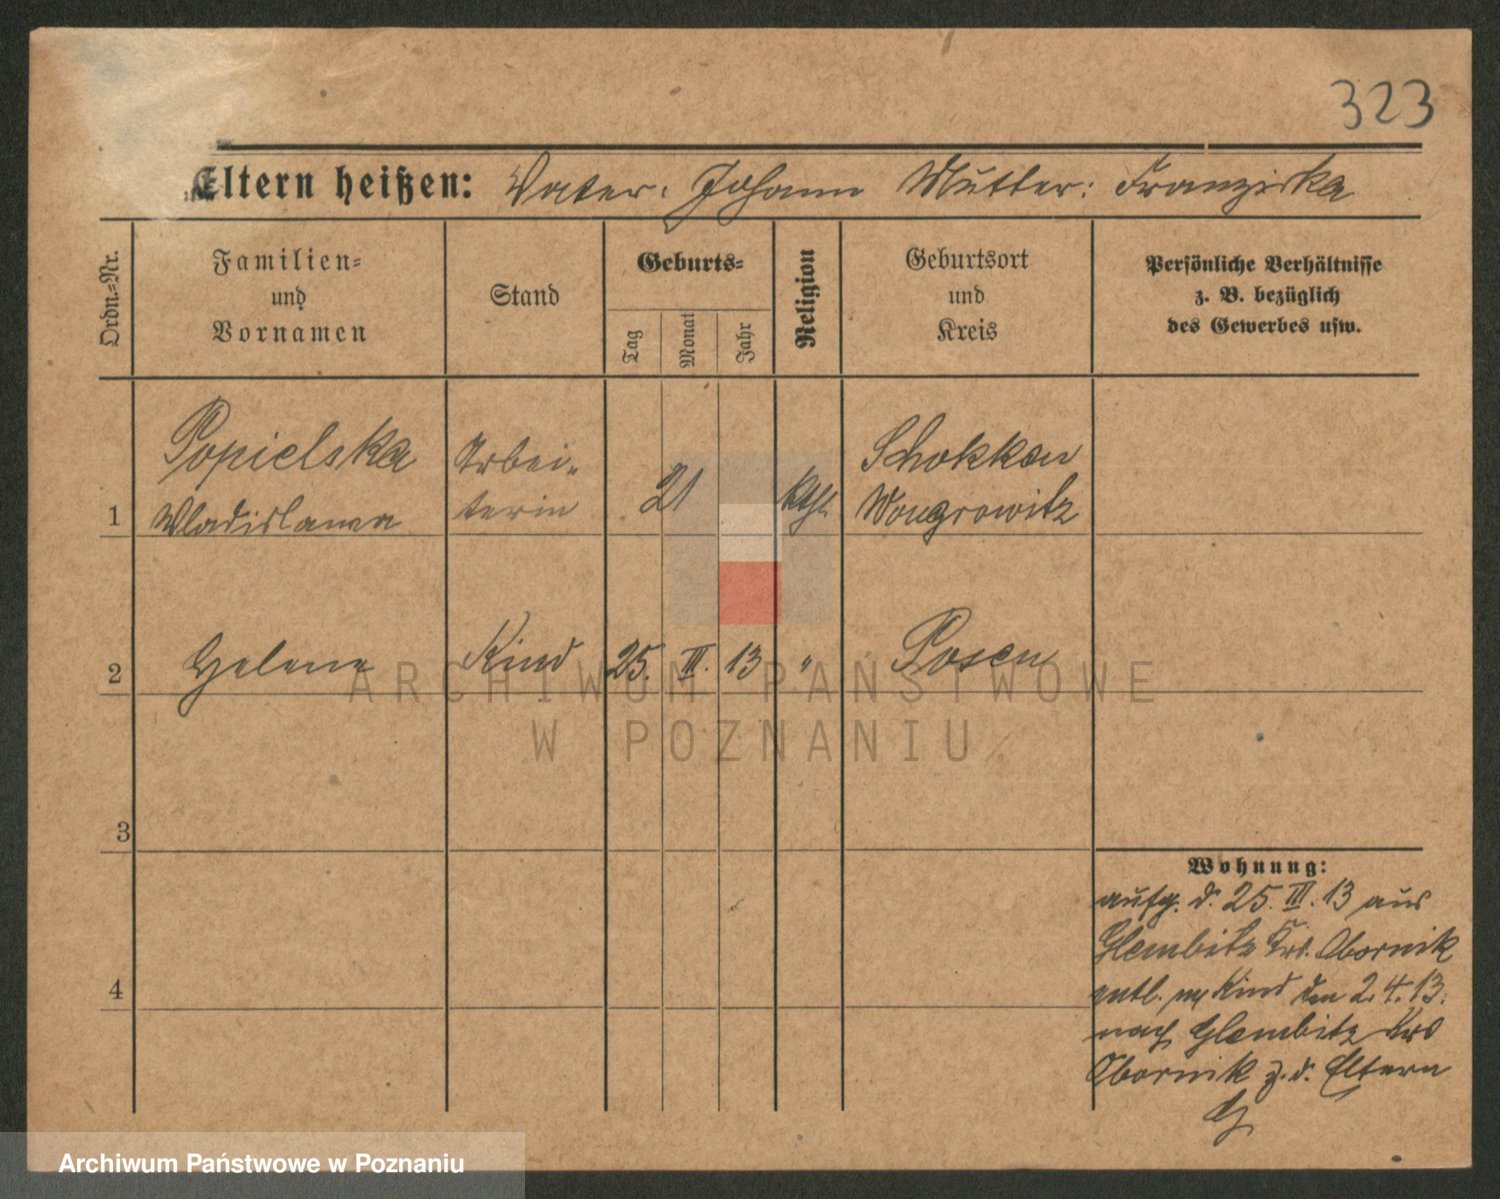 323
Eltern heißen: Vater: Johann Mutter: Franziska
Ordn.=Nr.
Familien=
und
Vornamen
Stand
Geburts=
Tag
Monat
Jahr
Religion
Geburtsort
und
Kreis
Persönliche Verhältnisse
z. B. bezüglich
des Gewerbes usw.
1
Popielska
Wladislawa
Arbei-
terin
21
kath.
Schokken
Wongrowitz
2
Helene
Kind
25. III. 13
"
Posen
3
4
Wohnung:
aufg. d. 25. III. 13 aus
Glembitz Krs. Obornik
entl. m Kind den 2. 4. 13.
nach Glembitz Krs
Obornik z. d. Eltern
ARCHIWUM PAŃSTWOWE
W POZNANIU
Archiwum Państwowe w Poznaniu